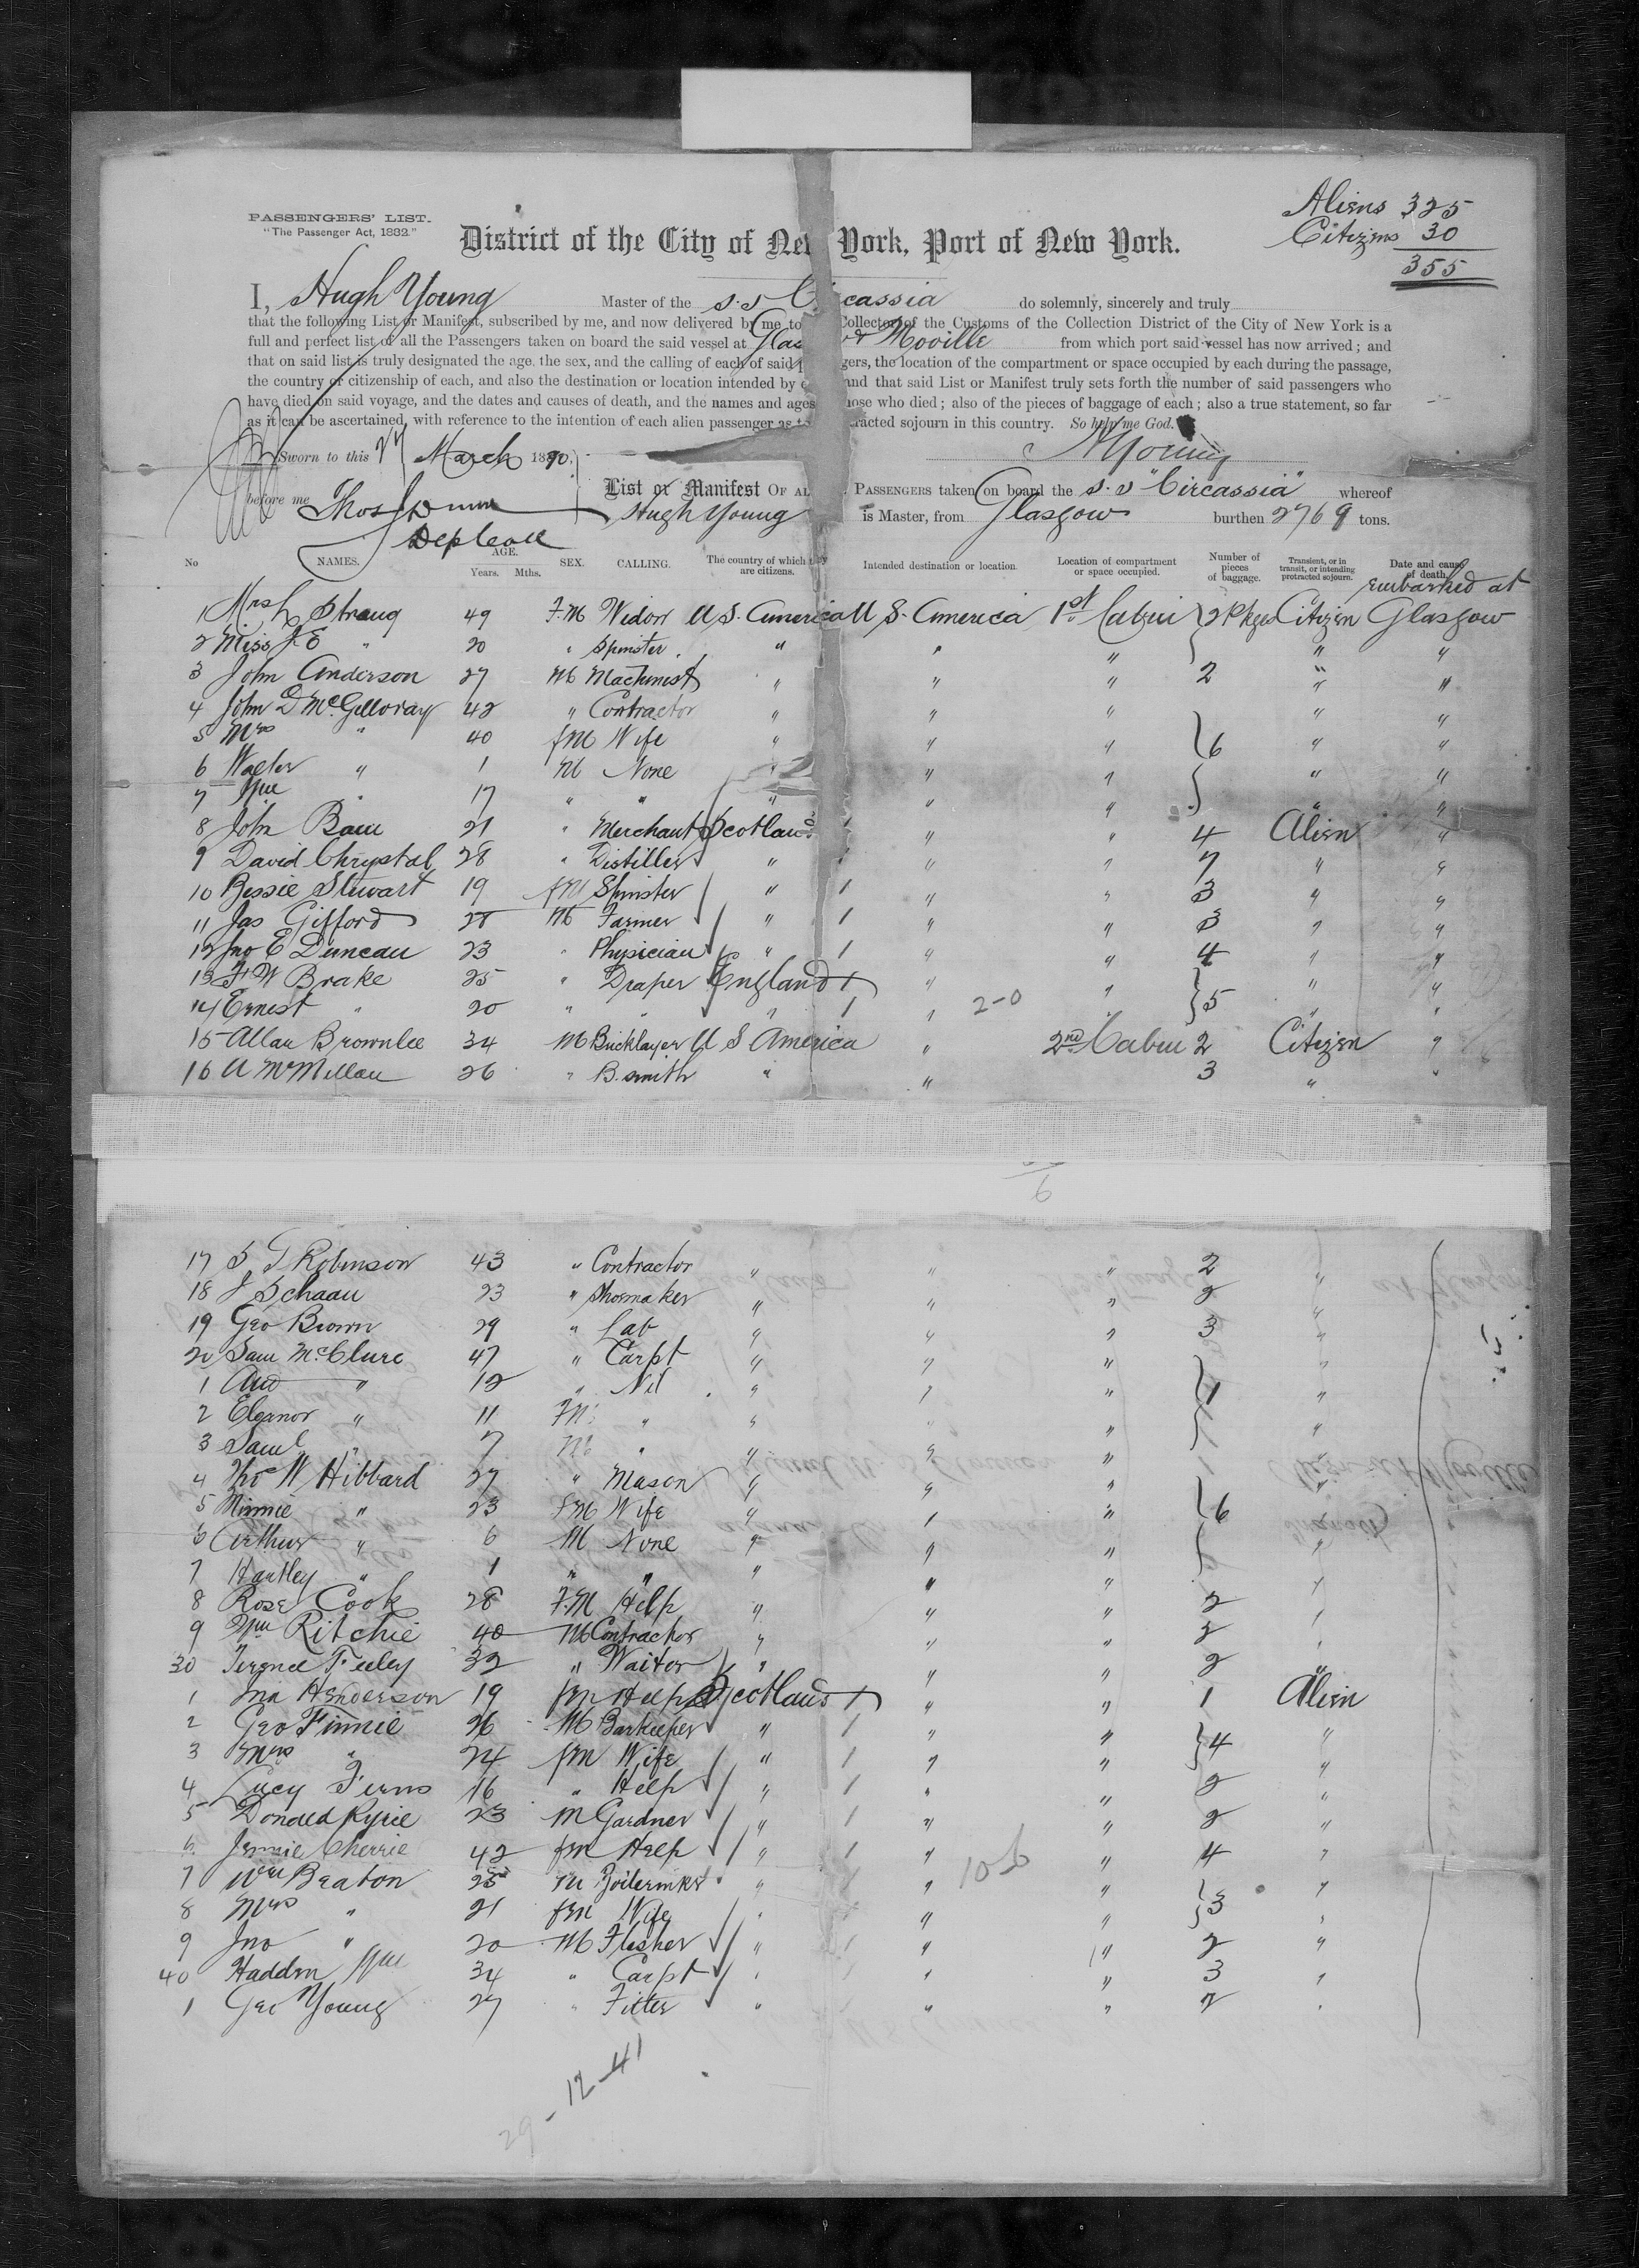 Aliens 325
Citizens 30
355
PASSENGERS' LIST.
"The Passenger Act, 1882."
District of the City of New York, Port of New York.
I, Hugh Young Master of the S.S Circassia do solemnly, sincerely and truly
that the following List or Manifest, subscribed by me, and now delivered by me to Collector of the Customs of the Collection District of the City of New York is a
full and perfect list of all the Passengers taken on board the said vessel at Glas Moville from which port said vessel has now arrived; and
that on said list is truly designated the age, the sex, and the calling of each of said p gers, the location of the compartment or space occupied by each during the passage,
the country or citizenship of each, and also the destination or location intended by e and that said List or Manifest truly sets forth the number of said passengers who
have died on said voyage, and the dates and causes of death, and the names and ages hose who died; also of the pieces of baggage of each; also a true statement, so far
as it can be ascertained, with reference to the intention of each alien passenger as to racted sojourn in this country. So help me God.
Sworn to this 27 March 1890. HYoung
before me Thos Dunn
Dep Coll
List or Manifest OF AL PASSENGERS taken on board the S.S "Circassia" whereof
Hugh Young is Master, from Glasgow burthen 2769 tons.
No NAMES. AGE. Years. Mths. SEX. CALLING. The country of which they are citizens. Intended destination or location. Location of compartment or space occupied. Number of pieces of baggage. Transient, or in transit, or intending protracted sojourn. Date and cause of death.
Embarked at
1 Mrs L Strang 49 F.M Widow U S. America U S. America 1st Cabin 2 Pkges Citizen Glasgow
2 Miss J E " 20 " Spinster " " " " "
3 John Anderson 27 M Machinist " " " 2 " "
4 John D McGilloray 42 " Contractor " " " " "
5 Mrs " 40 fM Wife " " " 6 " "
6 Walter " 1 M None " " " " "
7 Wm " 17 " " " " " " "
8 John Bain 21 " Merchant Scotland 1 " " 4 Alien "
9 David Chrystal 28 " Distiller " 1 " " 7 " "
10 Bessie Stewart 19 fM Spinster " 1 " " 3 " "
11 Jas Gifford 28 M Farmer " 1 " " 3 " "
12 Jno E Duncan 23 " Physician " 1 " " 4 " "
13 F W Brake 25 " Draper England 1 " " 5 " "
14 Ernest " 20 " " " 1 " 2-0 " " "
15 Allan Brownlee 34 M Bricklayer U S America " 2nd Cabin 2 Citizen "
16 A McMillan 26 " B.smith " " 3 " "
6
17 S T Robinson 43 " Contractor " " " 2 "
18 J Schaau 23 " Shoemaker " " " 2 "
19 Geo Brown 29 " Lab " " " 3 "
20 Sam McClure 47 " Carpt " " " "
1 And " 12 " Nil " " " 1 "
2 Eleanor " 11 FM " " " " "
3 Saml " 7 M " " " " "
4 Tho W Hibbard 27 " Mason " " " "
5 Minnie " 23 fM Wife " " " 6
6 Arthur " 6 M None " " " "
7 Hartley " 1 " " " " " "
8 Rose Cook 28 F.M Help " " " 2 "
9 Wm Ritchie 40 M Contractor " " " 2 "
30 Terence Feeley 32 " Waiter " " " 2 "
1 Ina Henderson 19 fm Help Scotland 1 " " 1 Alien
2 Geo Finnie 26 M Barkeeper " 1 " " 4 "
3 Mrs " 24 fm Wife " 1 " " "
4 Lucy Ferns 16 " Help " 1 " " 2 "
5 Donald Pyrie 23 M Gardner " 1 " " 2 "
6 Jennie Cherrie 42 fm Help " 1 " " 4 "
7 Wm Beaton 25 M Boilermkr " " " "
8 Mrs " 21 fm Wife " " " 3 "
9 Jno " 20 M Flesher " 1 " " 2 "
40 Haddon Wm 34 " Carpt " 1 " " 3 "
1 Geo Young 27 " Fitter " " " 2 "
29-12-41